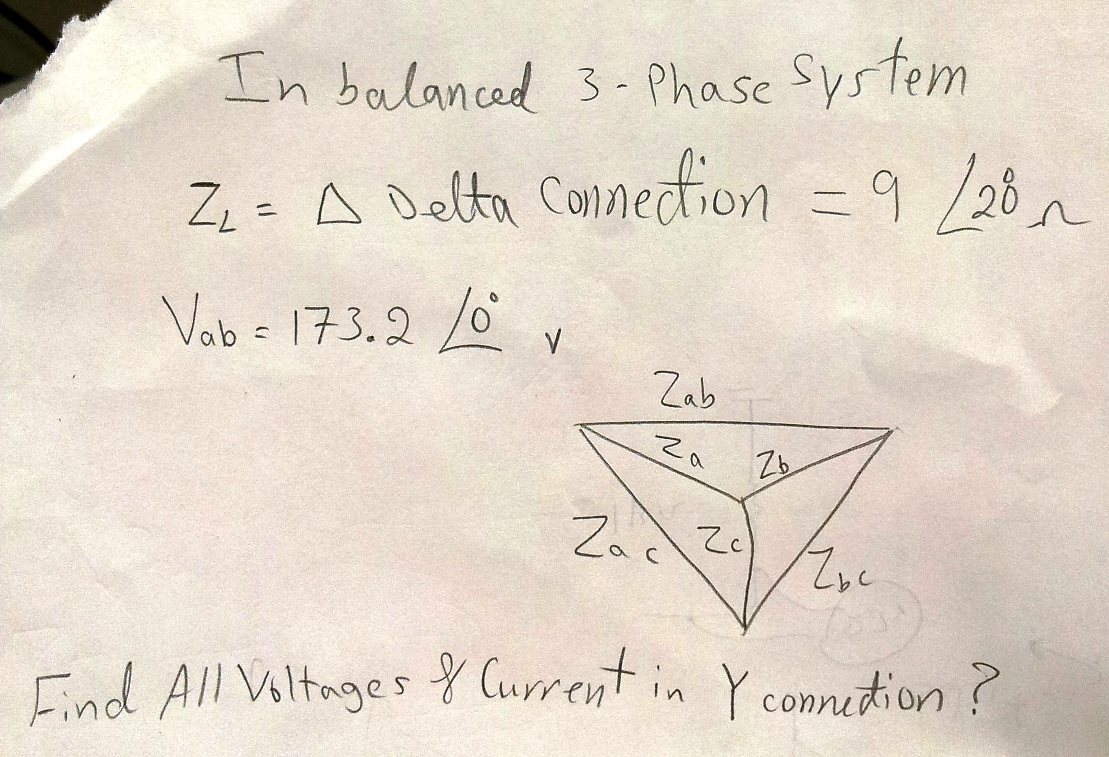 In balanced 3-Phase System
Z_L = Δ Delta Connection = 9 ∠20° Ω
Vab = 173.2 ∠0° v
Zab
Za Zb
Zac Zc Zbc
Find All Voltages & Current in Y connection?